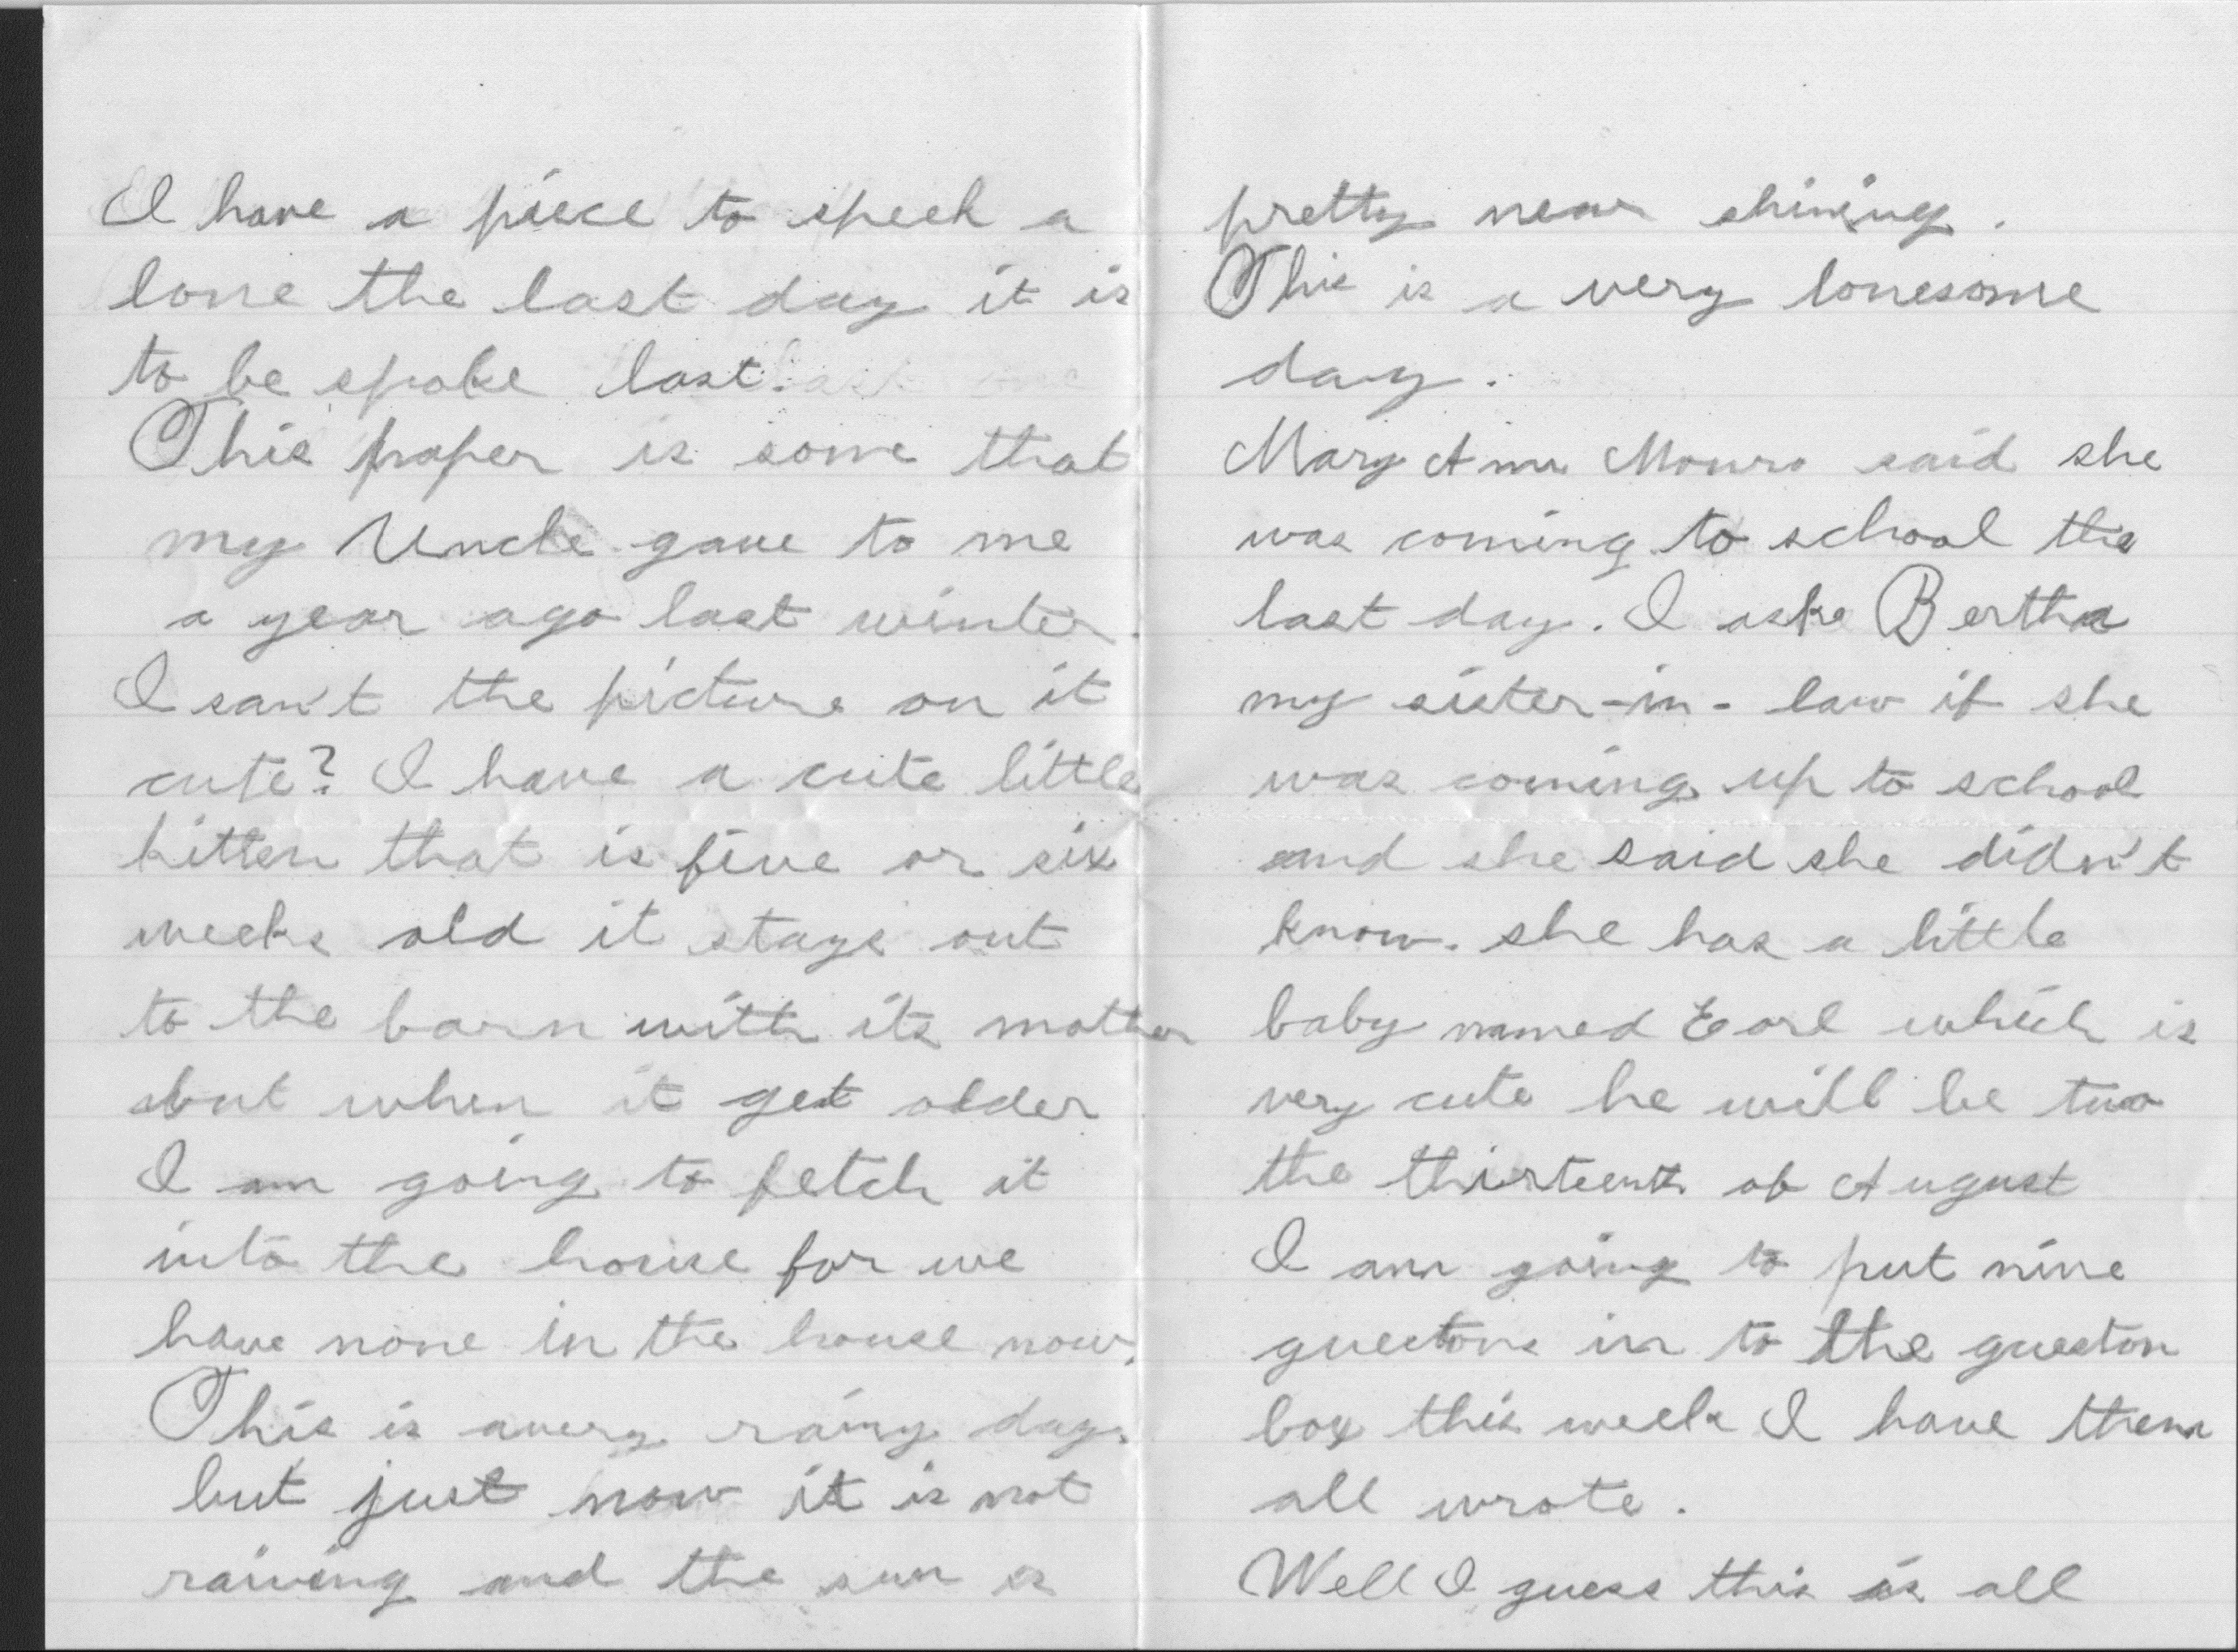 I have a piece to speek a
lone the last day it is
to be spoke last.
This paper is some that
my Uncle gave to me
a year ago last winter.
I san't the picture on it
cute? I have a cute little
kitten that is five or six
weeks old it stays out
to the barn with its mother
but when it get older
I am going to fetch it
into the house for we
have none in the house now.
This is avery rainy day.
but just now it is not
raining and the sun is
pretty near shining.
This is a very lonesome
day.
Mary Ann Monro said she
was coming to school the
last day. I aske Bertha
my sister-in-law if she
was coming up to school
and she said she didn't
know. she has a little
baby named Earl which is
very cute he will be two
the thirteenth of August
I am going to put nine
questons in to the queston
box this week I have them
all wrote.
Well I guess this is all